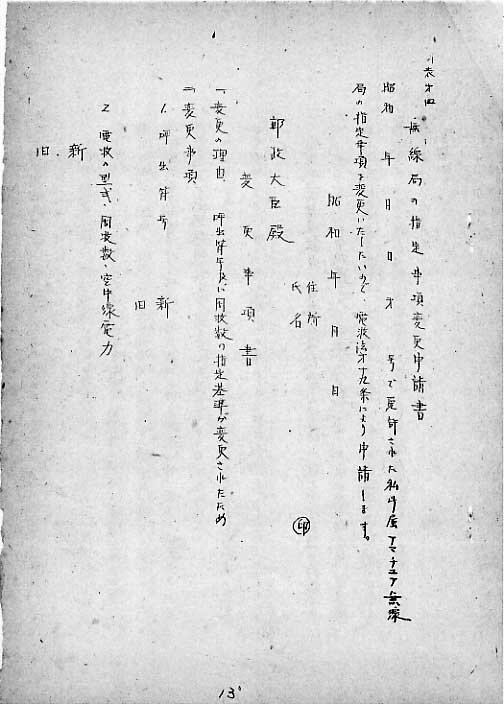 表才四
無線局の指定事項変更申請書
昭和 年 月 日 才 号で免許された私所属アマチユア無線
局の指定事項を変更いたしたいので、電波法才十九条により申請します。
昭和 年 月 日
住所
氏名 印
郵政大臣殿
変更事項書
一、変更の理由 呼出符号及び周波数の指定基準が変更されたため
二、変更事項
1. 呼出符号 新
旧
2. 電波の型式、周波数、空中線電力
新
旧
13